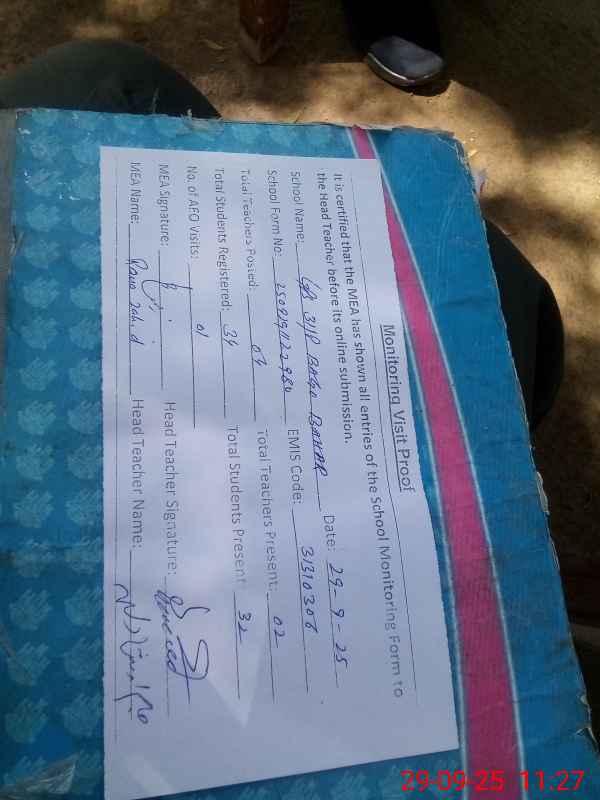 Monitoring Visit Proof
It is certified that the MEA has shown all entries of the School Monitoring Form to
the Head Teacher before its online submission.
School Name: 311P BAGO BAHAR Date: 29-9-25
School Form No: EMIS Code: 31310306
Total Teachers Posted: 02 Total Teachers Present: 02
Total Students Registered: 34 Total Students Present: 32
No. of AEO Visits: 01
MEA Signature: Head Teacher Signature:
MEA Name: Rana Zahid Head Teacher Name:
29-09-25 11:27